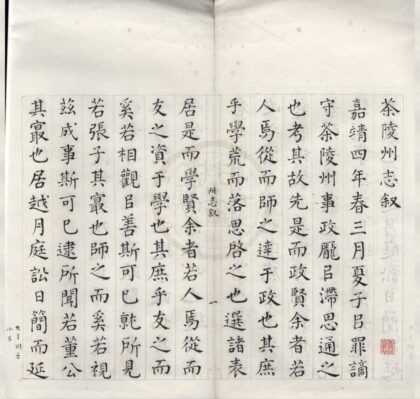 茶陵州志叙
嘉靖四年春三月夏子㠯罪謫
守茶陵州事政龎㠯滯思通之
也考其故先是而政賢余者若
人焉從而師之達于政也其庶
乎學荒而落思啓之也選諸表
州志叙
一
居是而學賢余者若人焉從而
友之資于學也其庶乎友之而
奚若相觀㠯善斯可已所見
若張子其寡也師之而奚若視
玆成事斯可已逮所聞若董公
其寡也居越月庭訟日簡而延